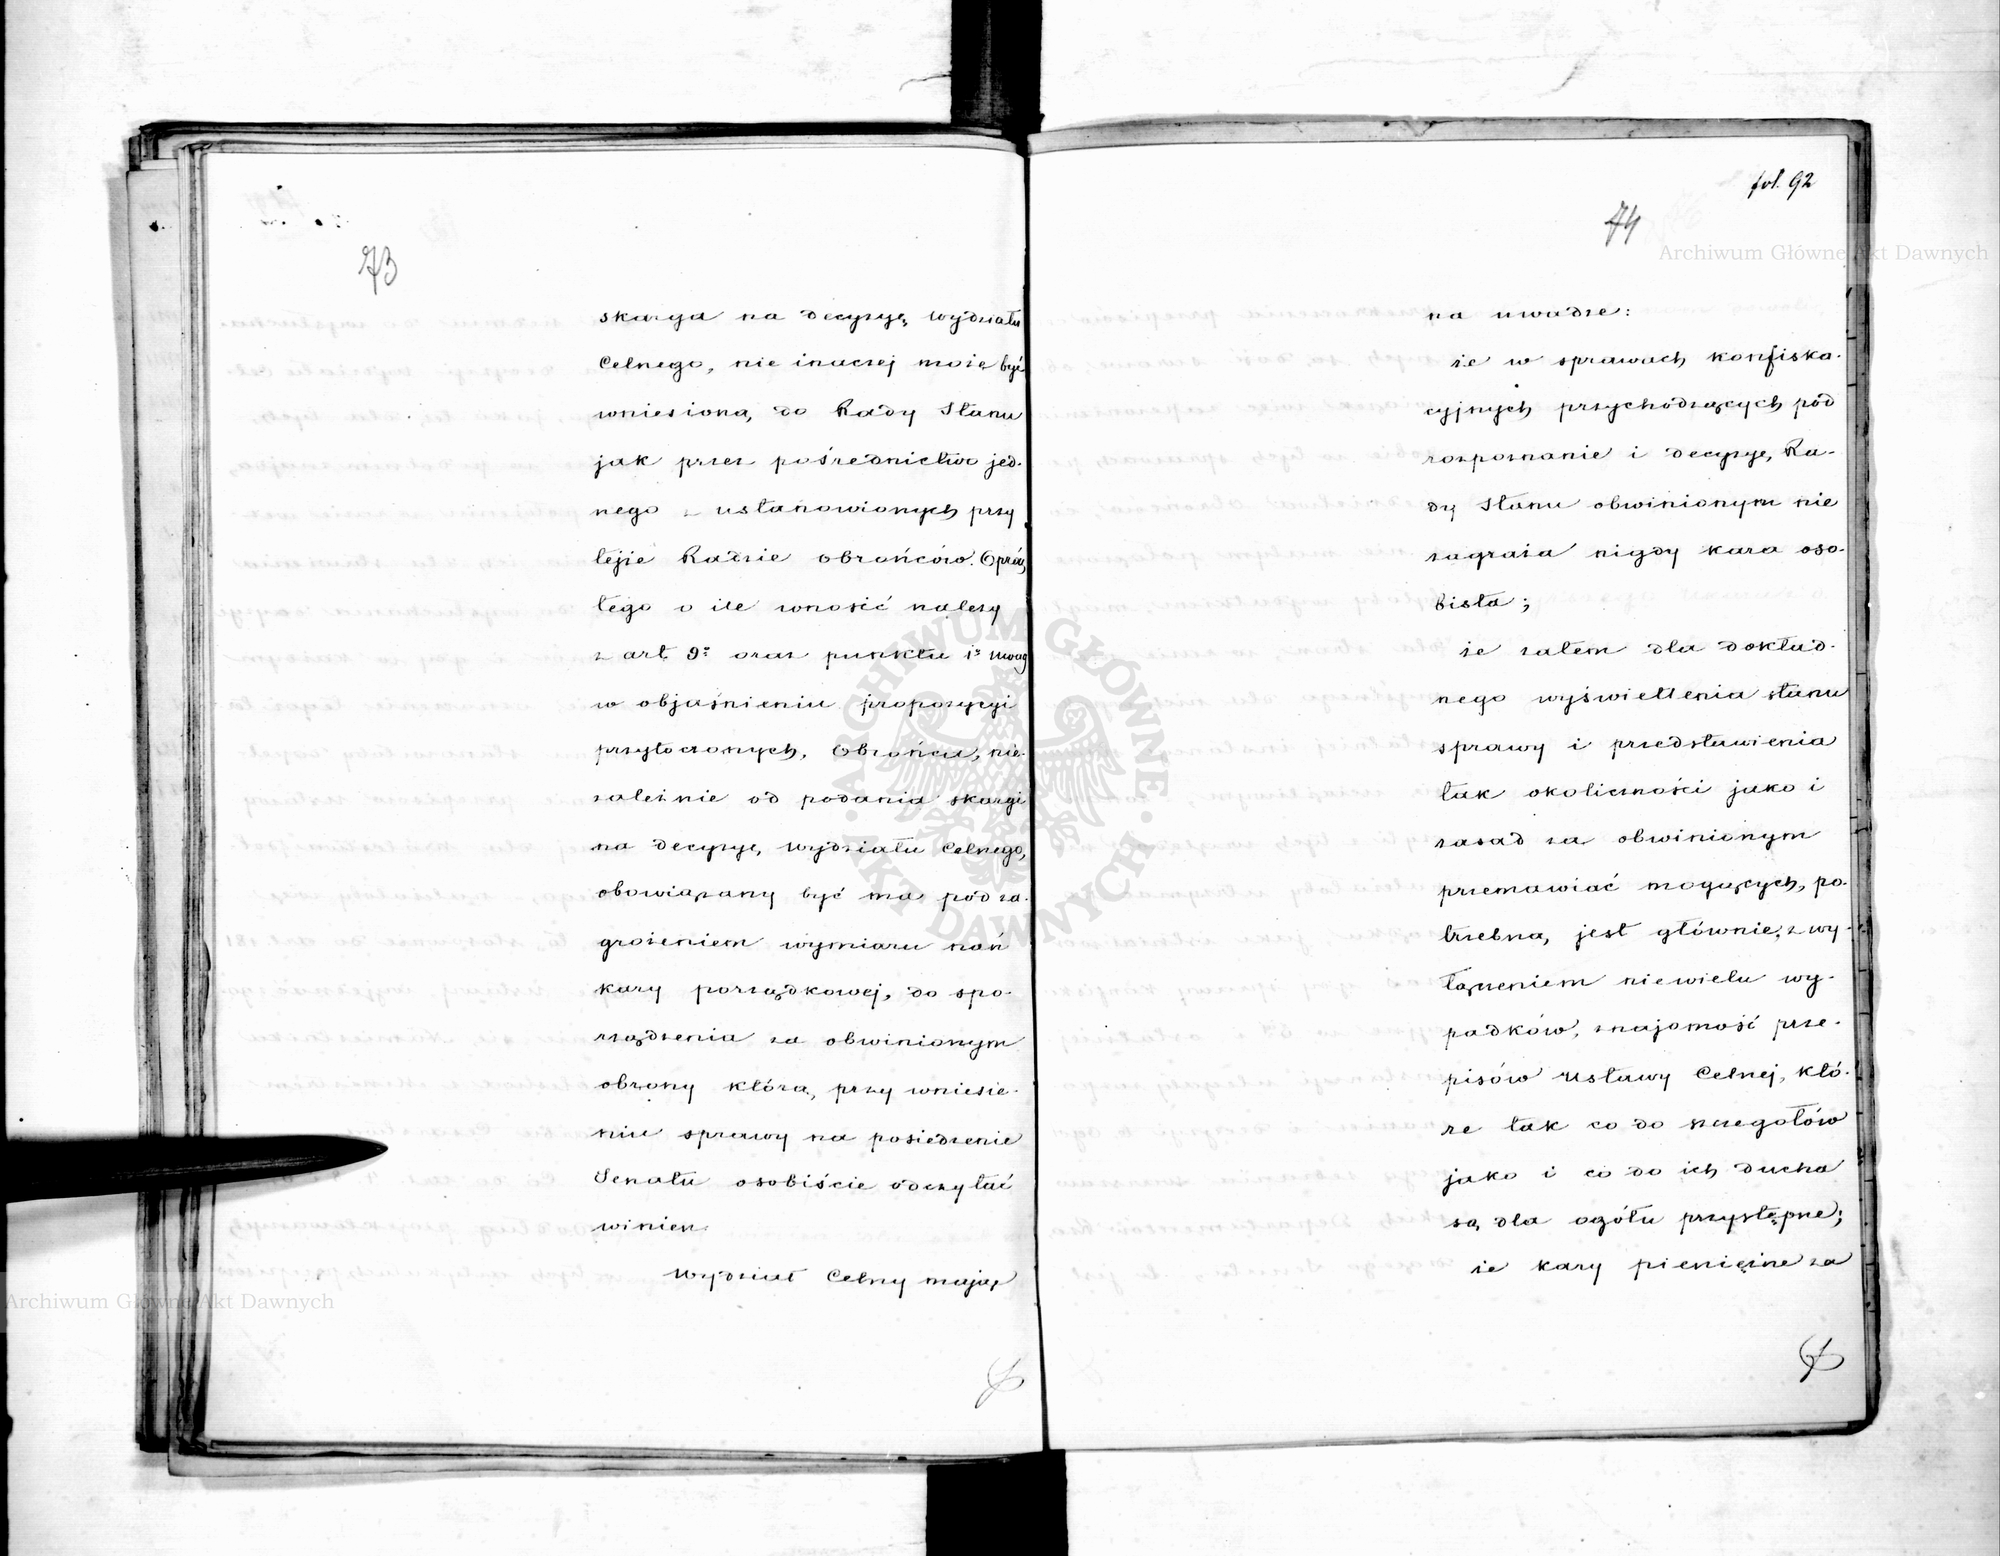 73
skarga na decyzyę Wydziału
Celnego, nie inaczej może być
wniesiona, do Rady Stanu
jak przez pośrednictwo jed-
nego z ustanowionych przy
tejże Radzie obrońców. Oprócz
tego o ile wnosić należy
z art 9º oraz punktu 1º uwag
w objaśnieniu propozycyi
przytoczonych, Obrońca, nie-
zależnie od podania skargi
na decyzyę, Wydziału Celnego,
obowiązany być ma pod za-
grożeniem wymiaru nań
kary porządkowej, do spo-
rządzenia za obwinionym
obrony którą, przy wniesie-
niu sprawy na posiedzenie
Senatu osobiście odczytać
winien.
Wydział Celny mając
fol. 92
74
na uwadze:
że w sprawach konfiska-
cyjnych przychodzących pod
rozpoznanie i decyzyę, Ra-
dy Stanu obwinionym nie
zagraża nigdy kara oso-
bista;
że zatem dla dokład-
nego wyświetlenia stanu
sprawy i przedstawienia
tak okoliczności jako i
zasad za obwinionym
przemawiać mogących, po-
trzebna, jest głównie, z wy-
łączeniem niewielu wy-
padków, znajomość prze-
pisów Ustawy Celnej, któ-
re tak co do szczegółów
jako i co do ich ducha
są dla ogółu przystępne;
że kary pieniężne za
Archiwum Główne Akt Dawnych
Archiwum Główne Akt Dawnych
ARCHIWUM GŁÓWNE · AKT DAWNYCH ·